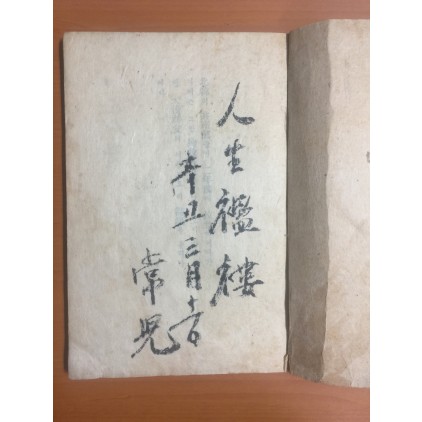 人生襤褸
辛丑三月十日
常